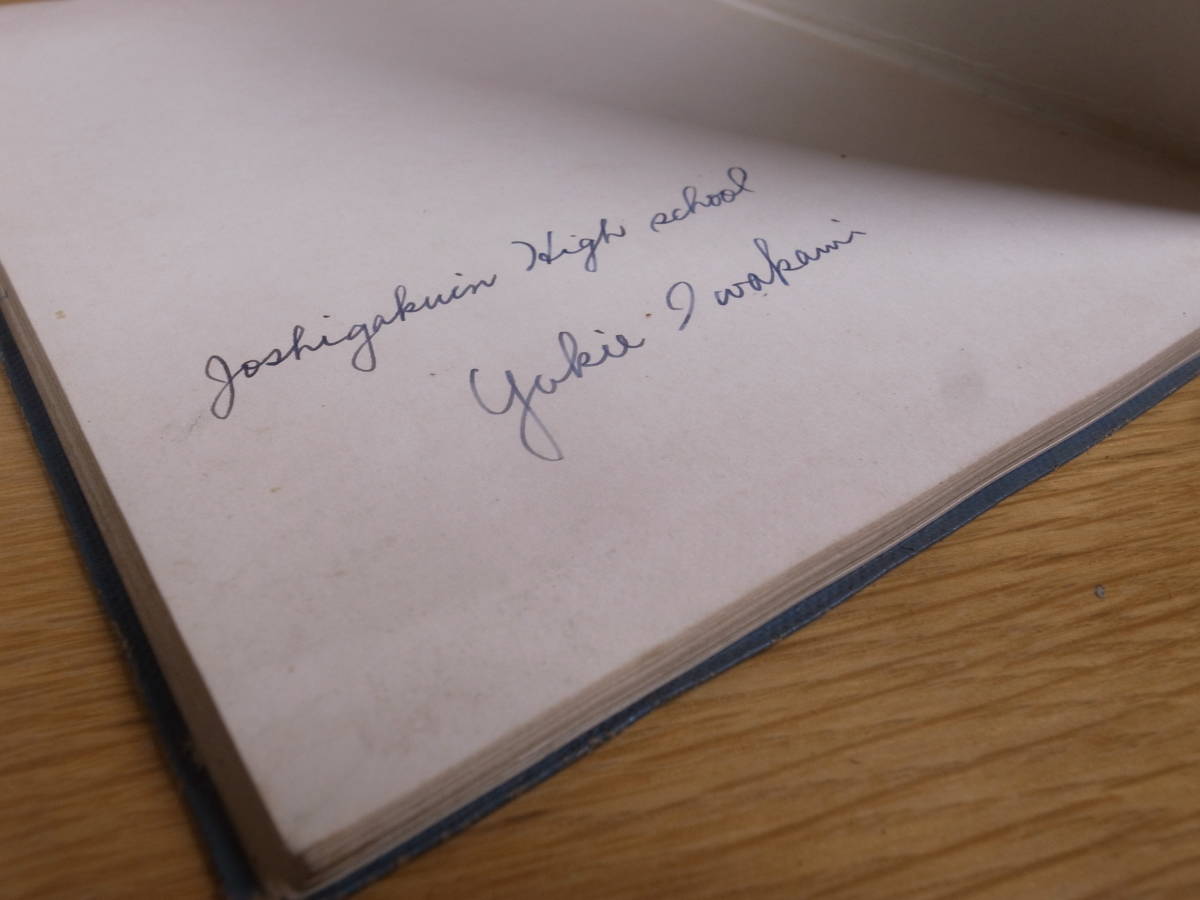 Joshigakuin High school
Yukie Iwakami